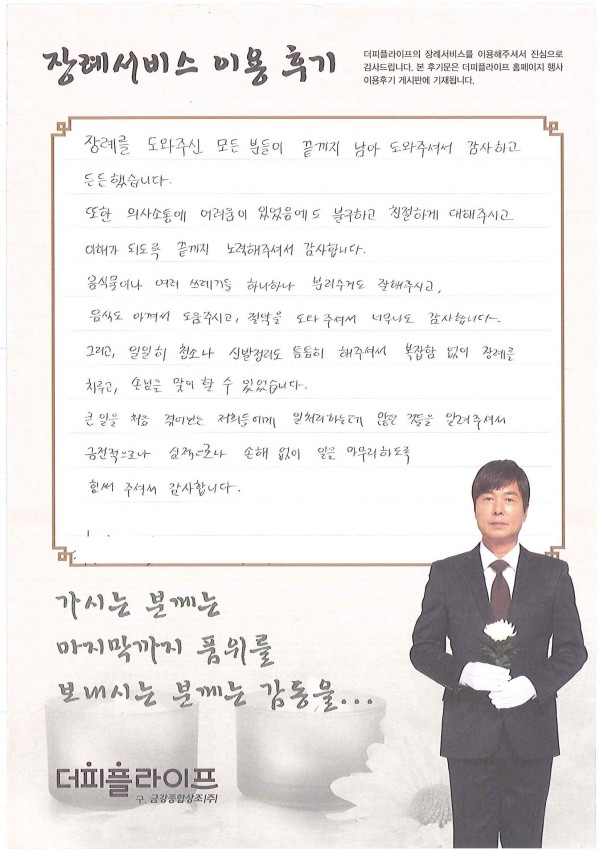 장례서비스 이용 후기
더피플라이프의 장례서비스를 이용해주셔서 진심으로
감사드립니다. 본 후기문은 더피플라이프 홈페이지 행사
이용후기 게시판에 기재됩니다.
장례를 도와주신 모든 분들이 끝까지 남아 도와주셔서 감사하고
든든했습니다.
또한 의사소통에 어려움이 있었음에도 불구하고 친절하게 대해주시고
이해가 되도록 끝까지 노력해주셔서 감사합니다.
음식물이나 여러 쓰레기들 하나하나 분리수거도 잘해주시고,
음식도 아껴서 도움주시고, 절약을 도와 주셔서 너무나도 감사합니다.
그리고, 일일히 청소나 신발정리도 틈틈히 해주셔서 복잡함 없이 장례를
치루고, 손님을 맞이 할 수 있었습니다.
큰일을 처음 겪어보는 저희들에게 일처리하는데 많은 것들을 알려주셔서
금전적으로나 심적으로나 손해 없이 일을 마무리하도록
힘써 주셔서 감사합니다.
가시는 분께는
마지막까지 품위를
보내시는 분께는 감동을...
더피플라이프
구. 금강종합상조(주)